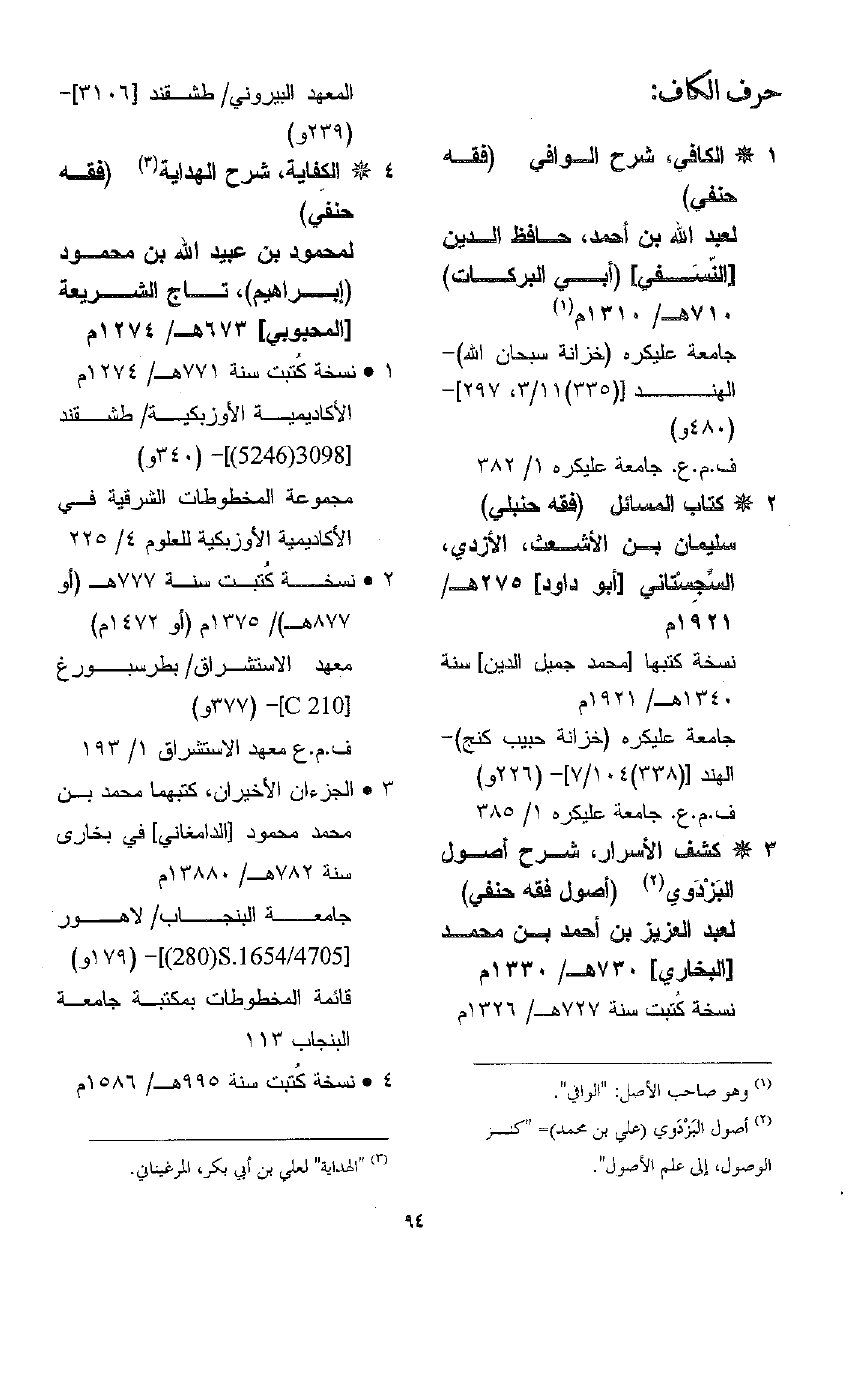 حرف الكاف:
١ ❋ الكافي، شرح الوافي (فقه
حنفي)
لعبد الله بن أحمد، حافظ الدين
[النَّسَفي] (أبي البركات)
٧١٠هـ/ ١٣١٠م(١)
جامعة عليكره (خزانة سبحان الله)-
الهند [(٣٣٥)٣/١١، ٢٩٧]-
(٤٨٠و)
ف.م.ع. جامعة عليكره ١/ ٣٨٢
٢ ❋ كتاب المسائل (فقه حنبلي)
سليمان بن الأشعث، الأزدي،
السِّجِسْتاني [أبو داود] ٢٧٥هـ/
١٩٢١م
نسخة كتبها [محمد جميل الدين] سنة
١٣٤٠هـ/ ١٩٢١م
جامعة عليكره (خزانة حبيب كنج)-
الهند [(٣٣٨)٧/١٠٤]- (٢٢٦و)
ف.م.ع. جامعة عليكره ١/ ٣٨٥
٣ ❋ كشف الأسرار، شرح أصول
البَزْدَوي(٢) (أصول فقه حنفي)
لعبد العزيز بن أحمد بن محمد
[البخاري] ٧٣٠هـ/ ١٣٣٠م
نسخة كُتبت سنة ٧٢٧هـ/ ١٣٢٦م
(١) وهو صاحب الأصل: "الوافي".
(٢) أصول البَزْدَوي (علي بن محمد)= "كنـز
الوصول، إلى علم الأصول".
المعهد البيروني/ طشقند [٣١٠٦]-
(٢٣٩و)
٤ ❋ الكفاية، شرح الهداية(٣) (فقه
حنفي)
لمحمود بن عبيد الله بن محمود
(إبراهيم)، تاج الشريعة
[المحبوبي] ٦٧٣هـ/ ١٢٧٤م
١ • نسخة كُتبت سنة ٧٧١هـ/ ١٢٧٤م
الأكاديمية الأوزبكية/ طشقند
[3098(5246)]- (٣٤٠و)
مجموعة المخطوطات الشرقية في
الأكاديمية الأوزبكية للعلوم ٤/ ٢٢٥
٢ • نسخة كُتبت سنة ٧٧٧هـ (أو
٨٧٧هـ)/ ١٣٧٥م (أو ١٤٧٢م)
معهد الاستشراق/ بطرسبورغ
[C 210]- (٣٧٧و)
ف.م.ع معهد الاستشراق ١/ ١٩٣
٣ • الجزءان الأخيران، كتبهما محمد بن
محمد محمود [الدامغاني] في بخارى
سنة ٧٨٢هـ/ ١٣٨٨٠م
جامعة البنجاب/ لاهور
[(280)S.1654/4705]- (١٧٩و)
قائمة المخطوطات بمكتبة جامعة
البنجاب ١١٣
٤ • نسخة كُتبت سنة ٩٩٥هـ/ ١٥٨٦م
(٣) "الهداية" لعلي بن أبي بكر، المرغيناني.
٩٤